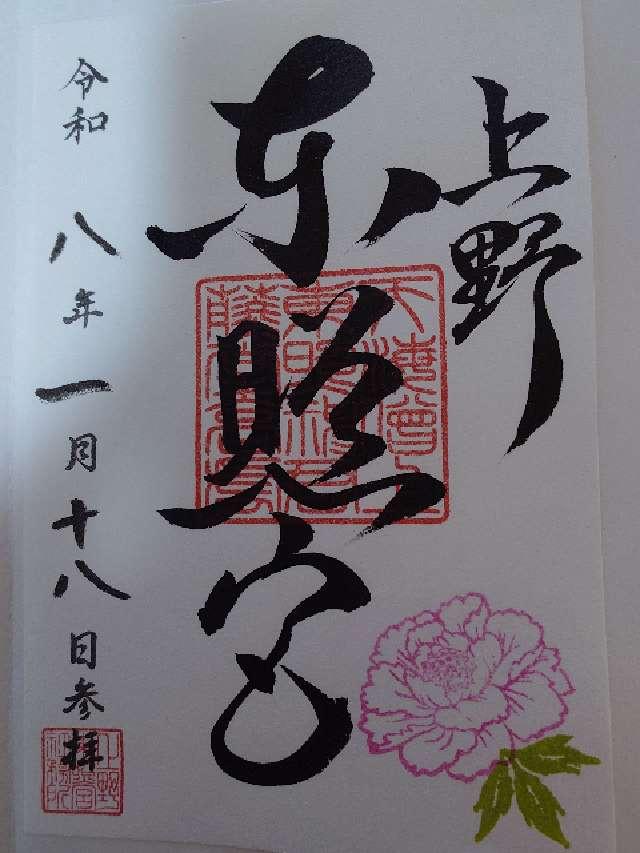 上野
東照宮
令和八年一月十八日参拝